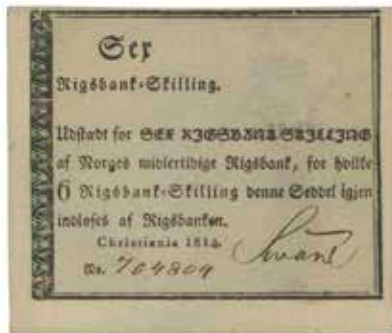 Sex
Rigsbank-Skilling.
Udstædt for SEX RIGSBANK SKILLING
af Norges midlertidige Rigsbank, for hvilke
6 Rigsbank-Skilling denne Seddel igjen
indløses af Rigsbanken.
Christiania 1814.
No. 704804